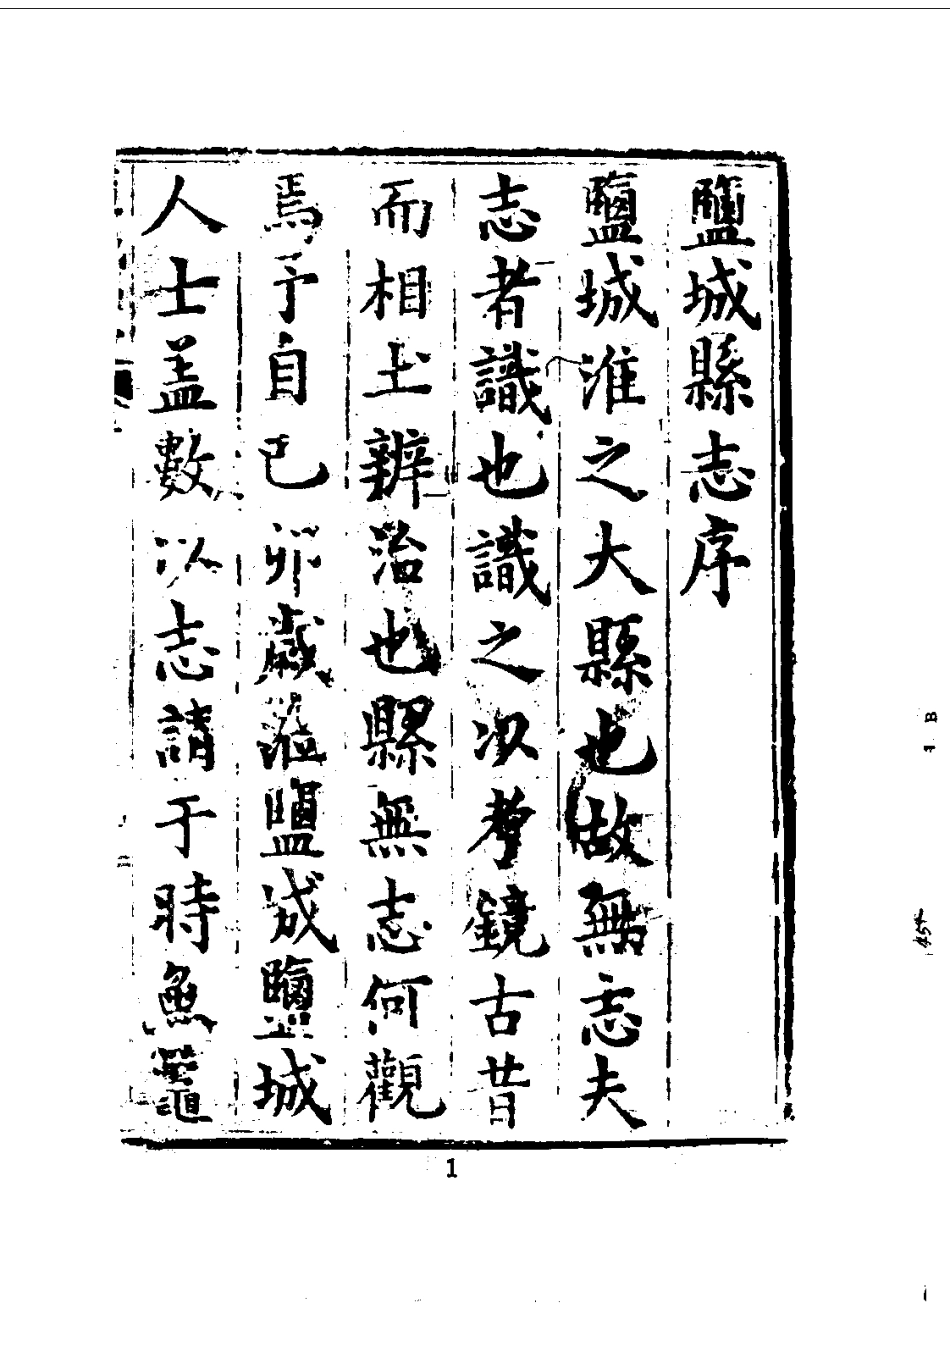 鹽城縣志序
鹽城淮之大縣也故無志夫
志者識也識之以考鏡古昔
而相土辨治也縣無志何觀
焉予自己卯歲蒞鹽城鹽城
人士盖數以志請于時魚鼈
1
1 B